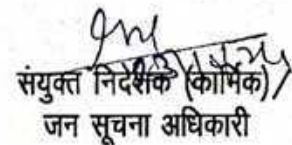 संयुक्त निदेशक (कार्मिक) /
जन सूचना अधिकारी